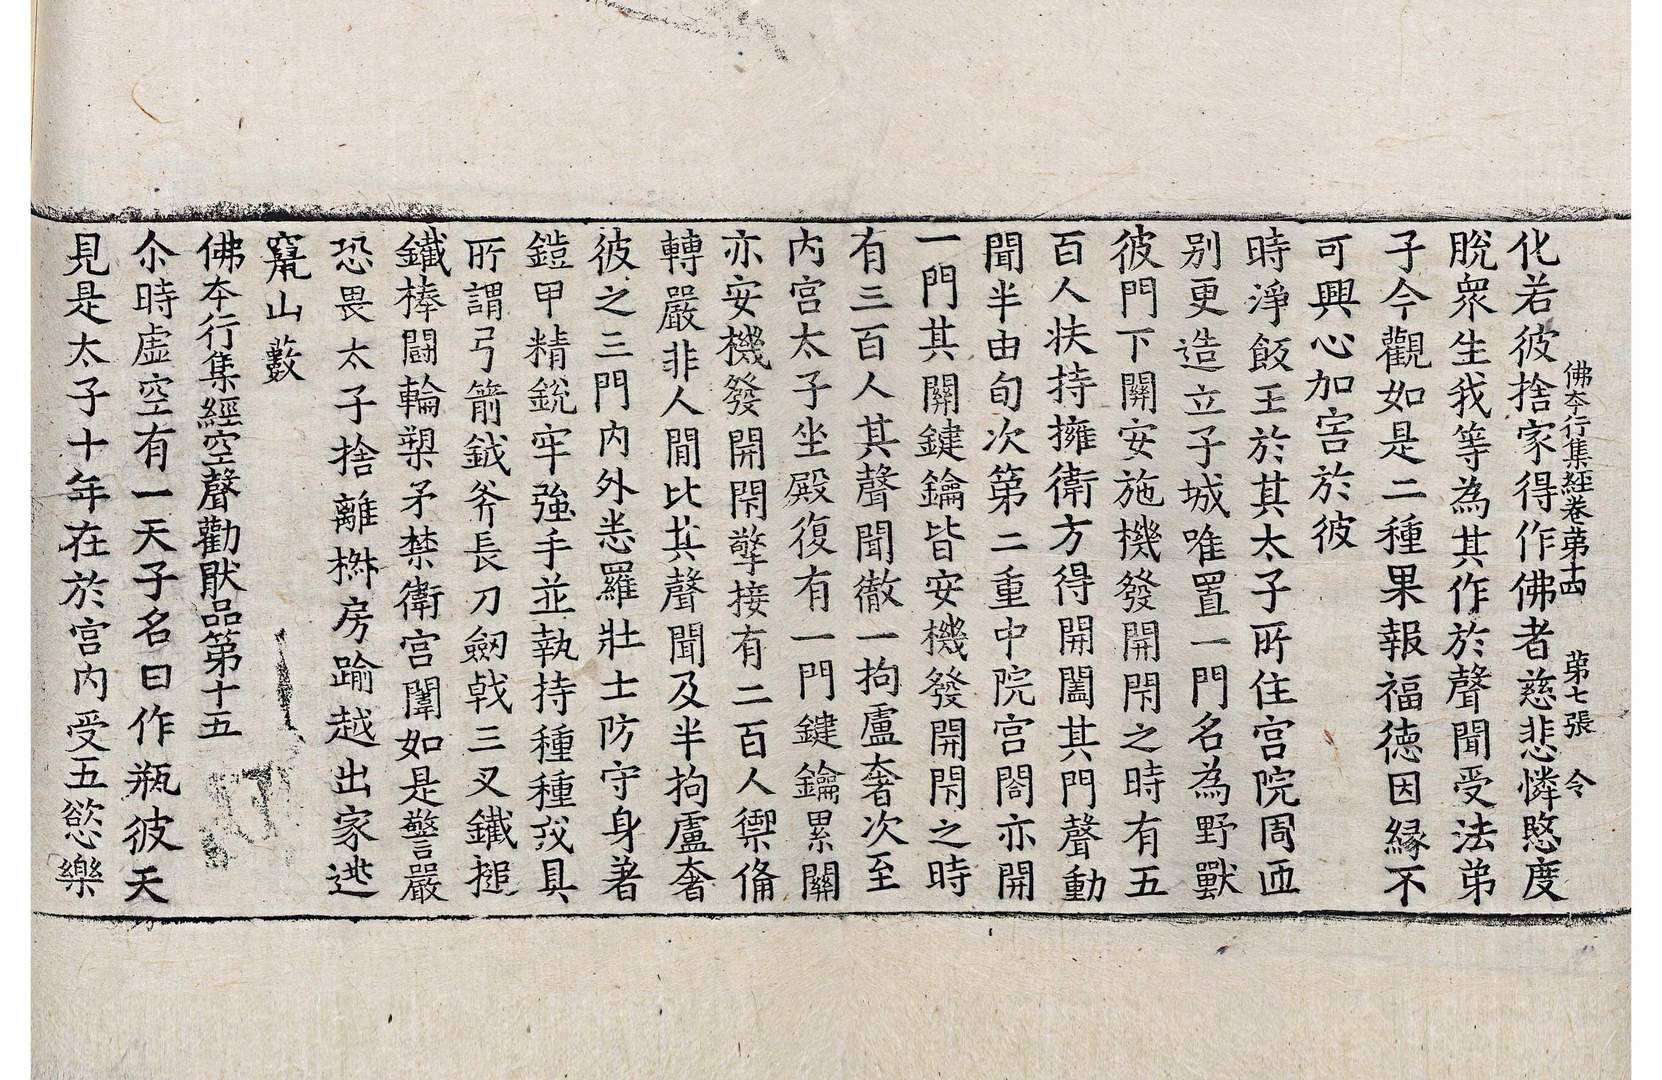 佛夲行集経卷第十四　第七張　令
化若彼捨家得作佛者慈悲憐愍度
脫衆生我等為其作於聲聞受法弟
子今觀如是二種果報福德因緣不
可興心加害於彼
時淨飯王於其太子所住宮院周迊
別更造立子城唯置一門名為野獸
彼門下關安施機發開閇之時有五
百人扶持擁衛方得開闔其門聲動
聞半由旬次第二重中院宮閤亦開
一門其關鍵鑰皆安機發開閇之時
有三百人其聲聞徹一拘盧奢次至
內宮太子坐殿復有一門鍵鑰累關
亦安機發開閇擎接有二百人禦俻
轉嚴非人間比其聲聞及半拘盧奢
彼之三門內外悉羅壯士防守身著
鎧甲精銳牢強手並執持種種戎具
所謂弓箭鉞斧長刀劒戟三叉鐵搥
鐵棒鬪輪槊矛禁衛宮闈如是警嚴
恐畏太子捨離椕房踰越出家逃
竄山藪
佛夲行集經空聲勸猒品第十五
尒時虛空有一天子名曰作瓶彼天
見是太子十年在於宮內受五慾樂